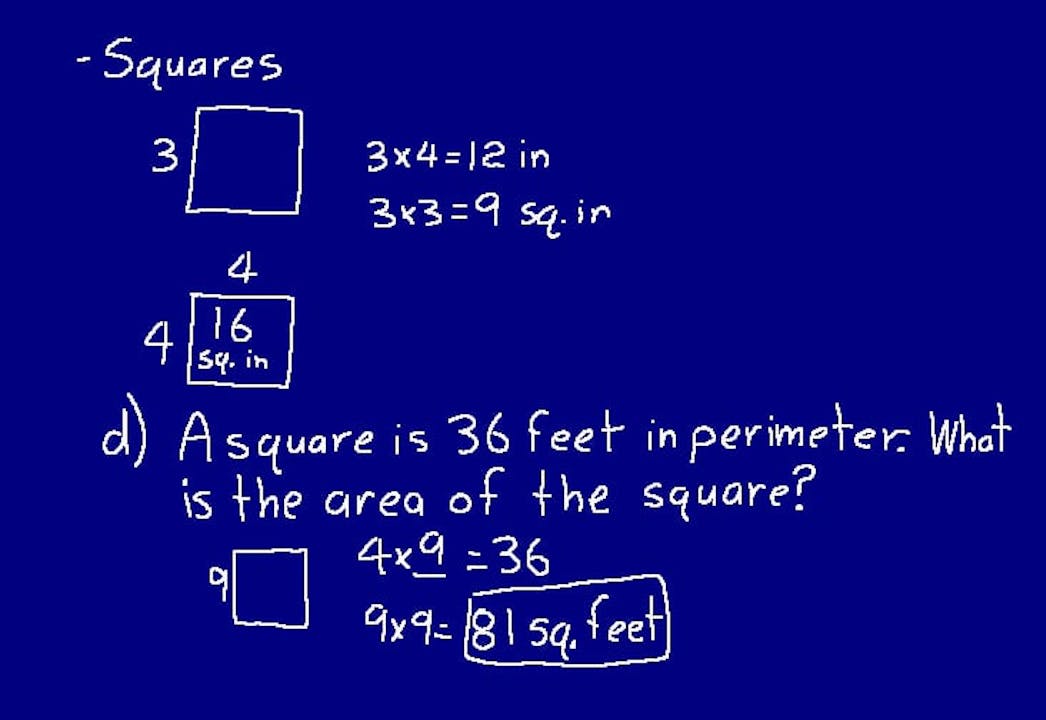 - Squares
3
3x4=12 in
3x3=9 sq. in
4
4
16
sq. in
d) A square is 36 feet in perimeter. What
is the area of the square?
9
4x9=36
9x9=81 sq. feet